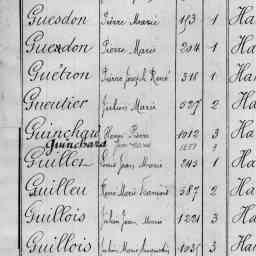 Guesdon Pierre Marie 153 1 Ha
Guesdon Pierre Marie 204 1 Ha
Guétron Pierre Joseph René 318 1 Ha
Gueutier Julien Marie 527 2 Ha
Guinchard Henri Pierre 1012 3 Ha
Guinchard 3
Guillot Louis Jean Marie 243 1 Ha
Guilleu Marie 587 2 Ha
Guillois Julien Jean Marie 1221 3 Ha
Guillois Julien Marie 1035 3 Ha